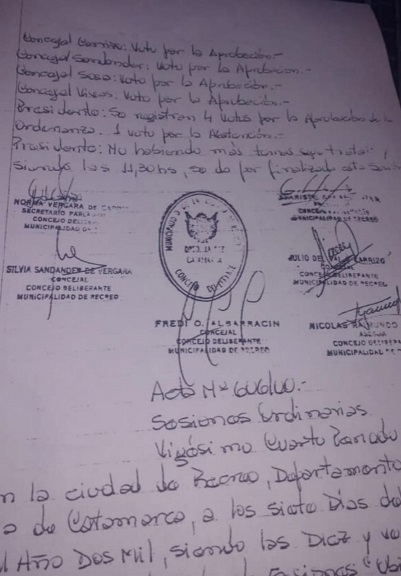 Concejal Carrizo: Voto por la Aprobación.-
Concejal Sandander: Voto por la Aprobación.-
Concejal Sosa: Voto por la Aprobación.-
Concejal Vivas: Voto por la Aprobación.-
Presidente: Se registran 4 Votos por la Aprobación de la
Ordenanza. 1 voto por la Abstención.-
Presidente: No habiendo más temas que tratar,
siendo las 11,30hs, se da por finalizada esta
NORMA VERGARA DE
SECRETARIO
CONCEJO
MUNICIPALIDAD
SILVIA SANDANDER DE VERGARA
CONCEJAL
CONCEJO DELIBERANTE
MUNICIPALIDAD DE RECREO
MUNICIPALIDAD DE
CATAMARCA
CONCEJO
CONCEJAL
DE RECREO
JULIO DEL CARRIZO
CONCEJAL
CONCEJO DELIBERANTE
MUNICIPALIDAD DE RECREO
FREDI O. ALBARRACIN
CONCEJAL
CONCEJO DELIBERANTE
MUNICIPALIDAD DE RECREO
NICOLAS RAIMUNDO
CONCEJO
MUNICIPALIDAD
Acta Nº 606/00.-
Sesiones Ordinarias
Vigésimo Cuarto Periodo
n la ciudad de Recreo, Departamento
de Catamarca, a los siete Días del
l Año Dos Mil, siendo las Diez y